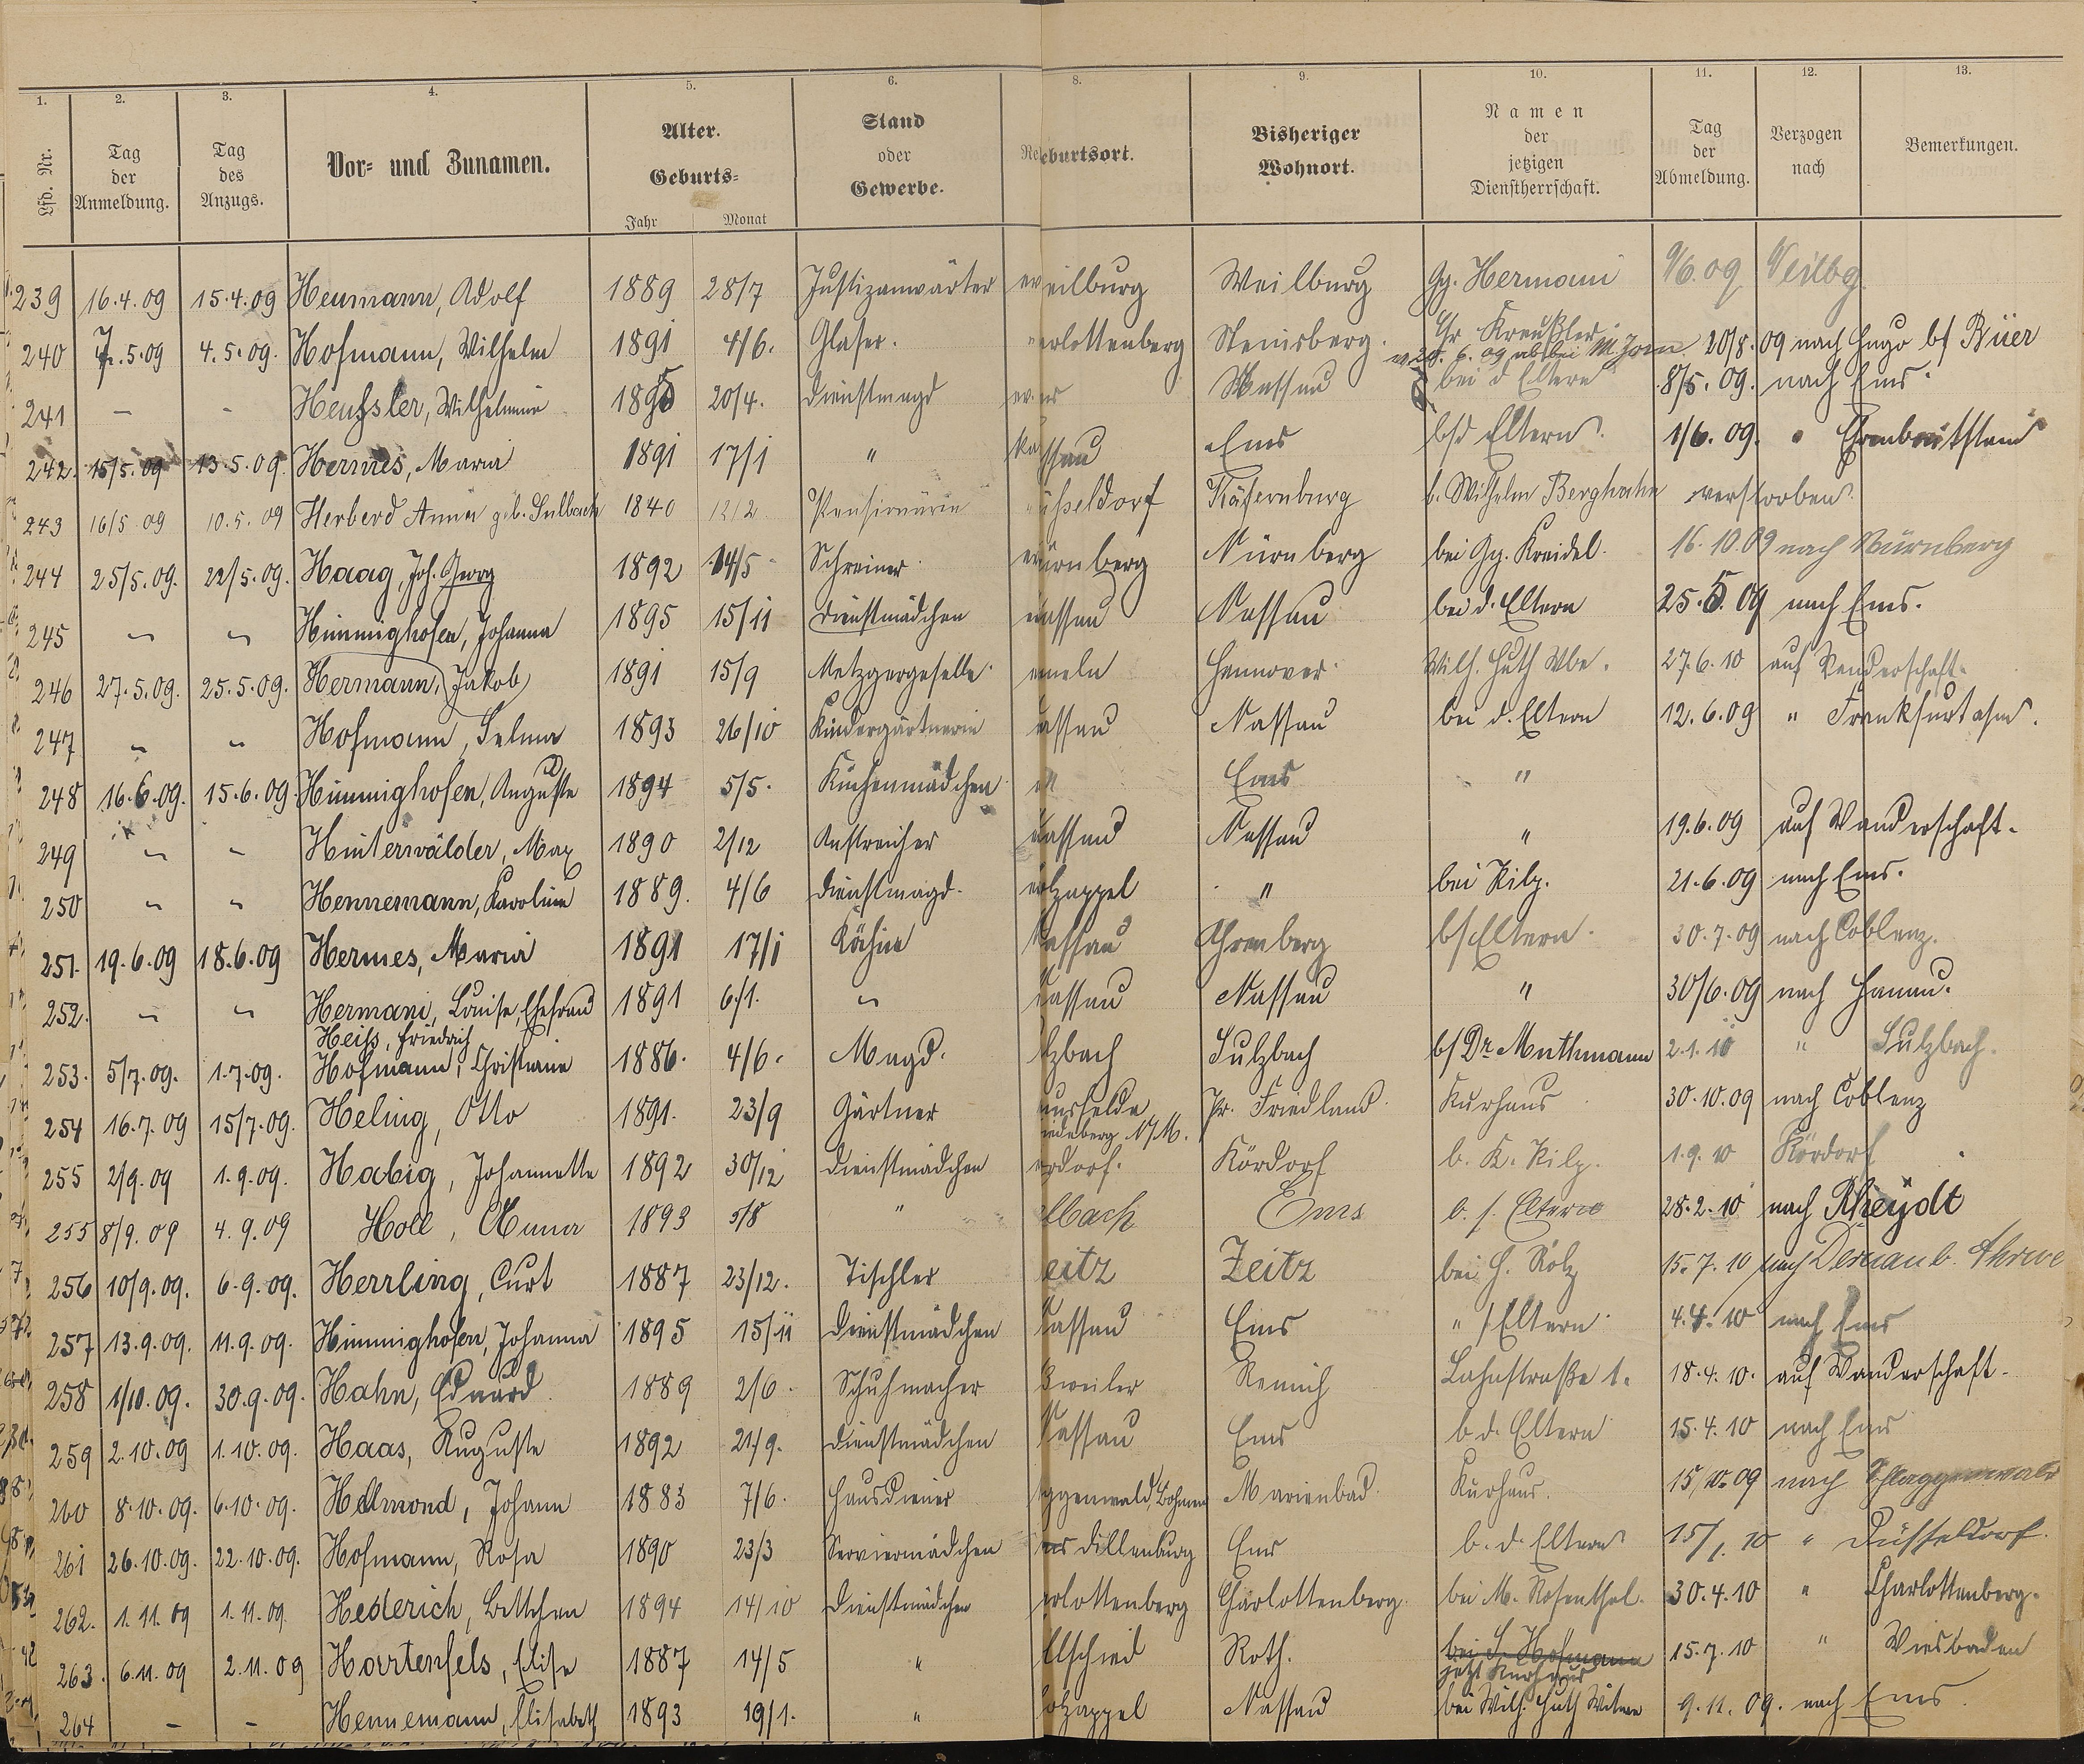 1. 2. 3. 4. 5. 6. 8. 9. 10. 11. 12. 13.
Lfd. Nr. Tag der Anmeldung. Tag des Anzugs. Vor- und Zunamen. Alter. Geburts- Jahr Monat Stand oder Gewerbe. eburtsort. Bisheriger Wohnort. Namen der jetzigen Dienstherrschaft. Tag der Abmeldung. Verzogen nach Bemerkungen.
239 16.4.09 15.4.09 Heumann, Adolf 1889 28/7 Justizanwärter eilburg Weilburg Gg. Hermani 9/6.09 Weilbg.
240 7.5.09 4.5.09. Hofmann, Wilhelm 1891 4/6. Glaser. arlottenberg Steinsberg. Chr Kreußler 20/8.09 nach Hugo bf Büer
v 28.6.09 ab bei M Zorn
241 - - Heußler, Wilhelmine 1895 20/4. Dienstmagd Nassau bei d Eltern 8/5.09. nach Ems.
242. 15/5.09 13.5.09. Hermes, Maria 1891 17/1 " ssau Ems b/d Eltern. 1/6.09. " Ehrenbreitstein
243 16/5 09 10.5.09 Herberd Anna geb. Sulbach 1840 12/2 Pensionärin üsseldorf Käfernburg b. Wilhelm Berghahn verstorben.
244 25/5.09. 22/5.09. Haag, Joh. Georg 1892 14/5 Schreiner ürnberg Nürnberg bei Gg. Kreidel. 16.10.09 nach Nürnberg
245 " " Himmighofen, Johanna 1895 15/11 Dienstmädchen assau Nassau bei d. Eltern 25.5.09 nach Ems.
246 27.5.09. 25.5.09. Hermann, Jakob 1891 15/9 Metzgergeselle ameln Hannover. Wilh. Huth Wbe. 27.6.10 auf Wanderschaft.
247 " " Hofmann, Selma 1893 26/10 Kindergärtnerin assau Nassau bei d. Eltern 12.6.09 " Frankfurt a/m.
248 16.6.09. 15.6.09 Himmighofen, Auguste 1894 5/5. Küchenmädchen " Ems "
249 " " Hinterwälder, Max 1890 2/12 Anstreicher assau Nassau " 19.6.09 auf Wanderschaft.
250 " " Hennemann, Karoline 1889. 4/6 Dienstmagd. olzappel " bei Kilp. 21.6.09 nach Ems.
251. 19.6.09 18.6.09 Hermes, Maria 1891 17/1 Köchin assau Ahrenberg b/Eltern. 30.7.09 nach Coblenz.
252. " " Hermani, Louise, Ehefrau 1891 6/1. " assau Nassau " 30/6.09 nach Hanau.
Heiß, Friedrich
253. 5/7.09. 1.7.09. Hofmann, Christiane 1886. 4/6. Magd. lzbach Sulzbach b/ Dr. Muthmann 2.1.10 " Sulzbach.
254 16.7.09 15/7.09. Heling, Otto 1891. 23/9 Gärtner ansfelde Pr. Friedland. Kurhaus 30.10.09 nach Coblenz
iedeberg N/M.
255 2/9.09 1.9.09. Habig, Johannette 1892 30/12 Dienstmädchen rdorf. Kördorf b. K. Kilp. 1.9.10 Kördorf
255 8/9.09 4.9.09 Holl, Anna 1893 5/8 " lbach Ems b. s. Eltern 28.2.10 nach Rheydt
256 10/9.09. 6.9.09. Herrling, Curt 1887 23/12. Tischler eitz Zeitz bei H. Kolz 15.7.10 nach Dernau b. Ahrwe
257 13.9.09. 11.9.09. Himmighofen, Johanna 1895 15/11 Dienstmädchen assau Ems " / Eltern 4.4.10 nach Ems
258 1/10.09. 30.9.09. Hahn, Eduard 1889 2/6. Schuhmacher ßweiler Remich Lahnstraße 1. 18.4.10. auf Wanderschaft.
259 2.10.09 1.10.09. Haas, Auguste 1892 21/9. Dienstmädchen assau Ems b d. Eltern 15.4.10 nach Ems
260 8.10.09. 6.10.09. Helmond, Johann 1883 7/6. Hausdiener ggenwald, Böhmen Marienbad Kurhaus. 15/10.09 nach Schlaggenwald
261 26.10.09. 22.10.09. Hofmann, Rosa 1890 23/3 Serviermädchen Dillenburg Ems b. d. Eltern 15/1.10 " Düsseldorf.
262. 1.11.09 1.11.09. Hederich, Bettchen 1894 14/10 Dienstmädchen arlottenberg Charlottenberg. bei M. Rosenthal. 30.4.10 " Charlottenberg.
263. 6.11.09 2.11.09 Hartenfels, Elise 1887 14/5 " llschied Roth. bei S. Hofmann 15.7.10 " Wiesbaden
jetzt Kurhaus
264 - - Hennemann, Elisabeth 1893 19/1. " olzappel Nassau bei Wilh. Huth Witwe 9.11.09. nach Ems.